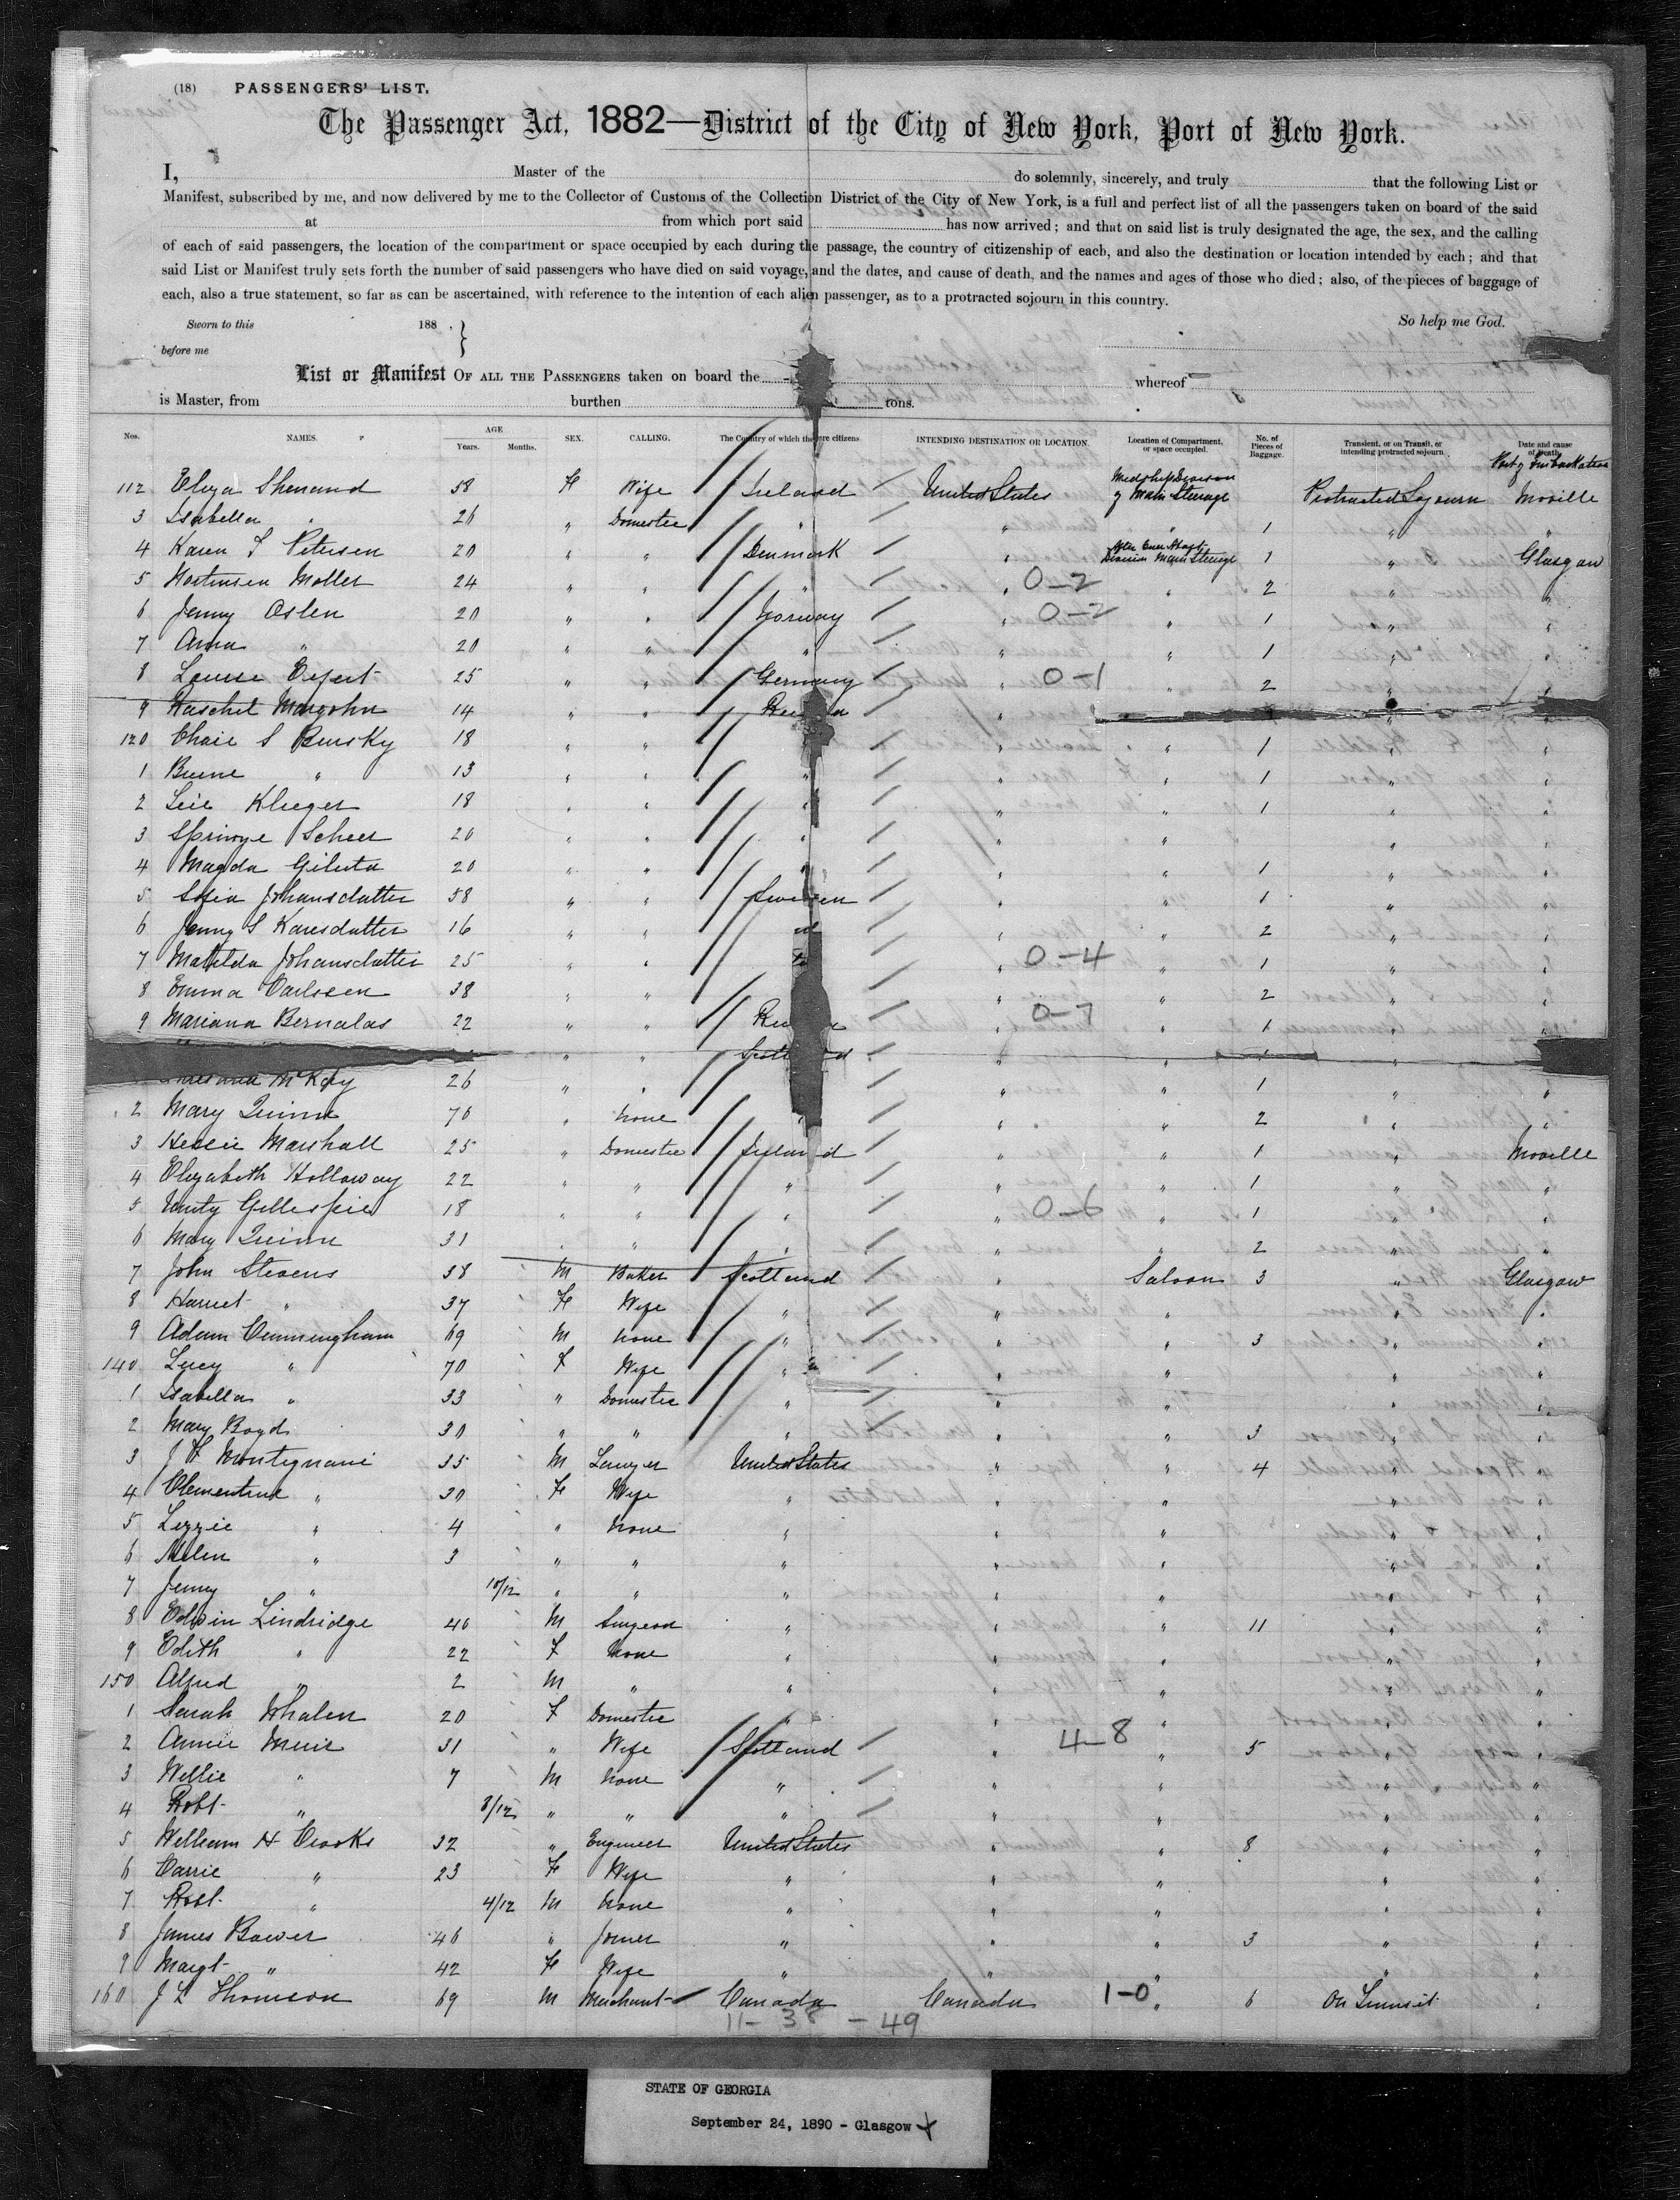 (18) PASSENGERS' LIST.
The Passenger Act, 1882—District of the City of New York, Port of New York.
I, Master of the do solemnly, sincerely, and truly that the following List or
Manifest, subscribed by me, and now delivered by me to the Collector of Customs of the Collection District of the City of New York, is a full and perfect list of all the passengers taken on board of the said
at from which port said has now arrived; and that on said list is truly designated the age, the sex, and the calling
of each of said passengers, the location of the compartment or space occupied by each during the passage, the country of citizenship of each, and also the destination or location intended by each; and that
said List or Manifest truly sets forth the number of said passengers who have died on said voyage, and the dates, and cause of death, and the names and ages of those who died; also, of the pieces of baggage of
each, also a true statement, so far as can be ascertained, with reference to the intention of each alien passenger, as to a protracted sojourn in this country.
Sworn to this 188 . } So help me God.
before me
List or Manifest OF ALL THE PASSENGERS taken on board the whereof
is Master, from burthen tons.
Nos. NAMES. AGE Years. Months. SEX. CALLING. The Country of which they are citizens. INTENDING DESTINATION OR LOCATION. Location of Compartment, or space occupied. No. of Pieces of Baggage. Transient, or on Transit, or intending protracted sojourn. Date and cause of Death.
Port of Embarkation
112 Eliza 58 F Wife Ireland United States Midship Division of Main Steerage Protracted Sojourn Moville
3 Isabella " 26 " Domestic " " " 1 " "
4 Karen S Petersen 20 " " Denmark " Division Main Steerage 1 " Glasgow
5 Moller 24 " " " " 0-2 " 2 " "
6 Jenny Oslen 20 " " Norway " 0-2 " 1 " "
7 Anna " 20 " " " " " 1 " "
8 Louise 25 " " Germany " 0-1 " 2 " "
9 14 " " "
120 Chaie S Bensky 18 " " " " 1 " "
1 " 13 " " " " " 1 " "
2 Leie Klieger 18 " " " " " 1 " "
3 Scheer 20 " " " " " " "
4 Magda 20 " " " " " 1 " "
5 Sofia Johansdatter 58 " " Sweden " " 1 " "
6 Jenny S Karesdatter 16 " " " " 2 " "
7 Matilda Johansdatter 25 " " " 0-4 " 1 " "
8 Emma Carlssen 38 " " " " 2 " "
9 Mariana Bernalas 22 " " " 0-7 " 1 " "
" " "
McKay 26 " " " " 1 " "
2 Mary Quinn 70 " None " " 2 " "
3 Marshall 25 " Domestic Ireland " " 1 " Moville
4 Elizabeth Holloway 22 " " " " " 1 " "
5 Unity Gillespie 18 " " " " 0-6 " 1 " "
6 Mary Quinn 31 " " " " " 2 " "
7 John Stevens 38 M Baker Scotland " Saloon 3 " Glasgow
8 Harriet " 37 F Wife " " " " "
9 Adam Cunningham 69 M None " " " 3 " "
140 Lucy " 70 F Wife " " " " "
1 Isabella " 33 " Domestic " " " " "
2 Mary Boyd 30 " " " " " 3 " "
3 J F Montignani 35 M Lawyer United States " " 4 " "
4 Clementina " 30 F Wife " " " " "
5 Lizzie " 4 " None " " " " "
6 Helen " 3 " " " " " " "
7 Jenny " 10/12 " " " " " " "
8 Edwin Lindridge 40 M Surgeon " " " 11 " "
9 Edith " 22 F None " " " " "
150 Alfred " 2 M " " " " " "
1 Sarah Whalen 20 F Domestic " " " " "
2 Annie Muir 31 " Wife Scotland " 4-8 " 5 " "
3 Willie " 7 M None " " " " "
4 Robt " 8/12 " " " " " " "
5 William H Crooks 32 " Engineer United States " " 8 " "
6 Carrie " 23 F Wife " " " " "
7 Robt " 4/12 M None " " " " "
8 James Bower 46 " Joiner " " " 3 " "
9 Margt " 42 F Wife " " " " "
160 J L Thomson 69 M Merchant Canada Canada 1-0 " 6 On Transit "
11- 38 - 49
STATE OF GEORGIA
September 24, 1890 - Glasgow